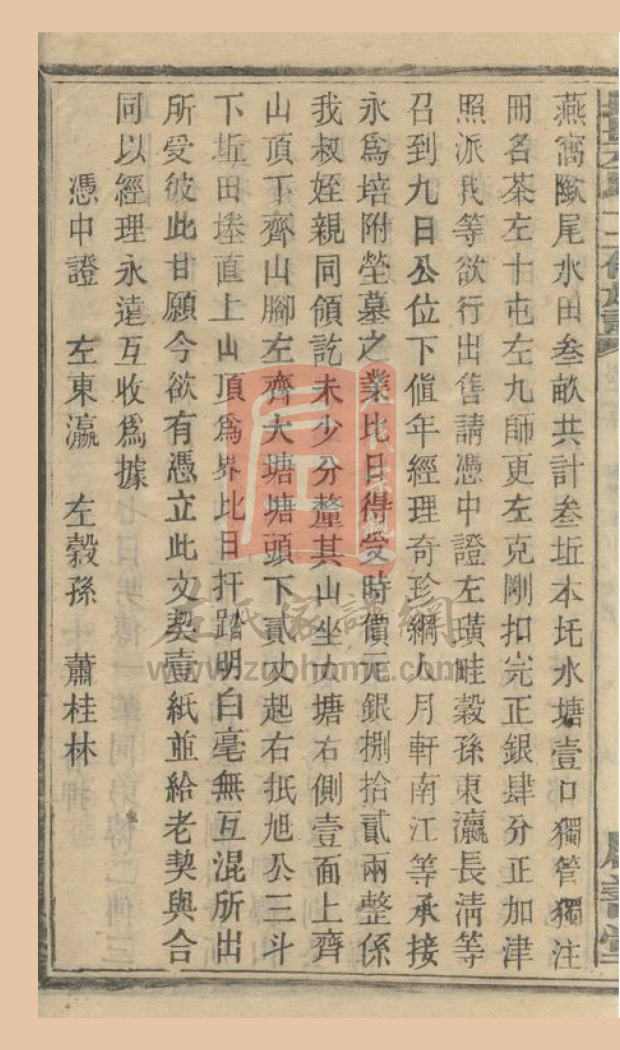 燕窩隊尾水田叁畝共計叁坵本圫水塘壹口獨管獨注
冊名茶左十屯左九師更左克剛扣完正銀肆分正加津
照派我等欲行出售請憑中證左璜畦穀孫東瀛長淸等
召到九日公位下值年經理奇珍綱人月軒南江等承接
永爲培附塋墓之業比日得受時價元銀捌拾貳兩整係
我叔姪親同領訖未少分釐其山坐大塘右側壹面上齊
山頂下齊山腳左齊大塘塘頭下貳丈起右抵旭公三斗
下坵田塍直上山頂爲界比日扦踏明白毫無互混所出
所受彼此甘願今欲有憑立此文契壹紙並給老契與合
同以經理永遠互收爲據
憑中證 左東瀛 左穀孫 蕭桂林
左氏家譜網
www.zuohome.com